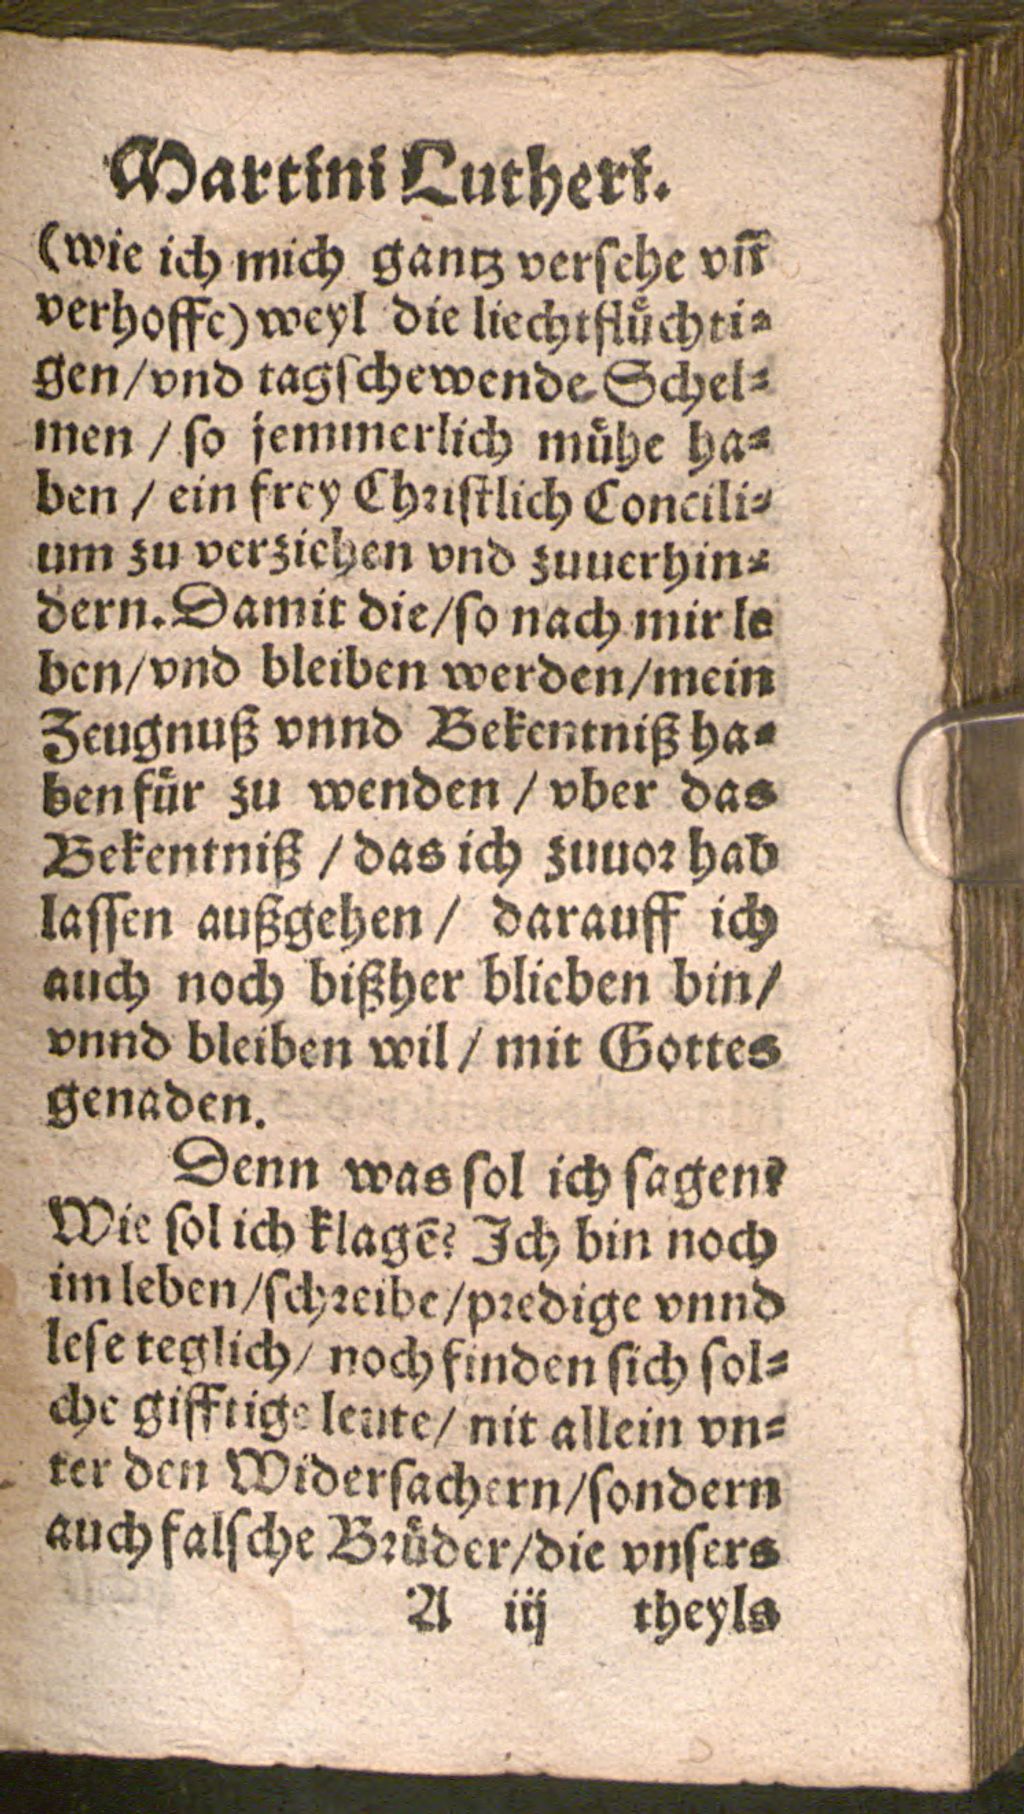 Martini Lutheri.
(wie ich mich gantz versehe vñ
verhoffe) weyl die liechtflüchti-
gen/vnd tagschewende Schel-
men / so jemmerlich mühe ha-
ben / ein frey Christlich Concili-
um zu verziehen vnd zuuerhin-
dern. Damit die/so nach mir le
ben/vnd bleiben werden/mein
Zeugnuß vnnd Bekentniß ha-
ben für zu wenden / vber das
Bekentniß / das ich zuuor hab
lassen außgehen / darauff ich
auch noch bißher blieben bin/
vnnd bleiben wil / mit Gottes
genaden.
Denn was sol ich sagen?
Wie sol ich klagē? Ich bin noch
im leben/schreibe/predige vnnd
lese teglich/ noch finden sich sol-
che gifftige leute/ nit allein vn-
ter den Widersachern/sondern
auch falsche Brüder/die vnsers
A iij theyls